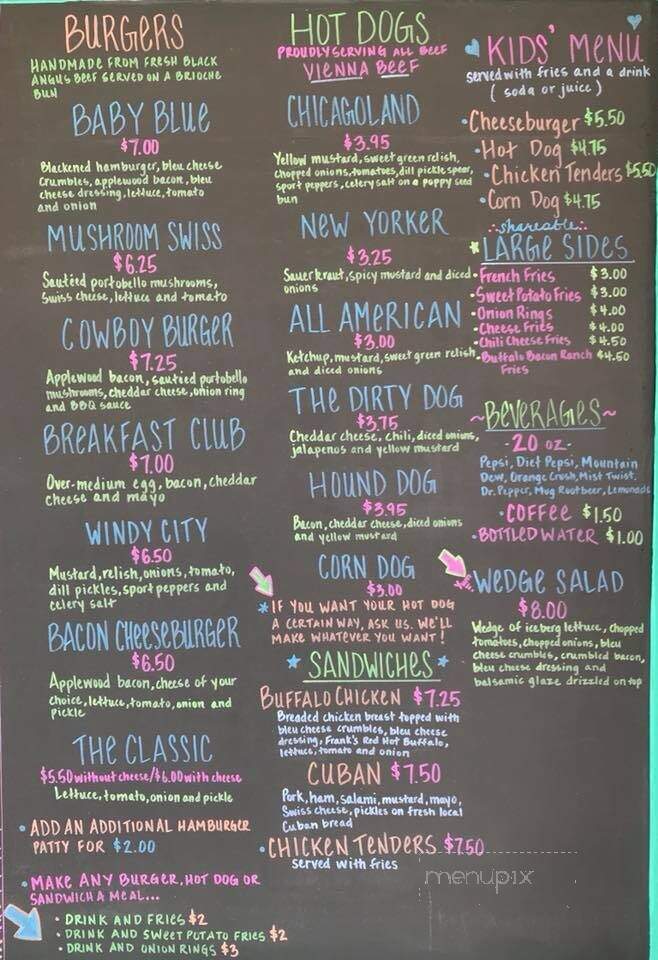 BURGERS
HANDMADE FROM FRESH BLACK
ANGUS BEEF SERVED ON A BRIOCHE
BUN
BABY BLUE
$7.00
Blackened hamburger, bleu cheese
crumbles, applewood bacon, bleu
cheese dressing, lettuce, tomato
and onion
MUSHROOM SWISS
$6.25
Sautéed portobello mushrooms,
Swiss cheese, lettuce and tomato
COWBOY BURGER
$7.25
Applewood bacon, sautéed portobello
mushrooms, cheddar cheese, onion ring
and BBQ sauce
BREAKFAST CLUB
$7.00
Over-medium egg, bacon, cheddar
cheese and mayo
WINDY CITY
$6.50
Mustard, relish, onions, tomato,
dill pickles, sport peppers and
celery salt
BACON CHEESEBURGER
$6.50
Applewood bacon, cheese of your
choice, lettuce, tomato, onion and
pickle
THE CLASSIC
$5.50 without cheese/$6.00 with cheese
Lettuce, tomato, onion and pickle
• ADD AN ADDITIONAL HAMBURGER
PATTY FOR $2.00
• MAKE ANY BURGER, HOT DOG OR
SANDWICH A MEAL...
• DRINK AND FRIES $2
• DRINK AND SWEET POTATO FRIES $2
• DRINK AND ONION RINGS $3
HOT DOGS
PROUDLY SERVING ALL BEEF
VIENNA BEEF
CHICAGOLAND
$3.95
Yellow mustard, sweet green relish,
chopped onions, tomatoes, dill pickle spear,
sport peppers, celery salt on a poppy seed
bun
NEW YORKER
$3.25
Sauerkraut, spicy mustard and diced
onions
ALL AMERICAN
$3.00
Ketchup, mustard, sweet green relish
and diced onions
THE DIRTY DOG
$3.75
Cheddar cheese, chili, diced onions,
jalapenos and yellow mustard
HOUND DOG
$3.95
Bacon, cheddar cheese, diced onions
and yellow mustard
CORN DOG
$3.00
* IF YOU WANT YOUR HOT DOG
A CERTAIN WAY, ASK US. WE'LL
MAKE WHATEVER YOU WANT!
SANDWICHES
BUFFALO CHICKEN $7.25
Breaded chicken breast topped with
bleu cheese crumbles, bleu cheese
dressing, Frank's Red Hot Buffalo,
lettuce, tomato and onion
CUBAN $7.50
Pork, ham, salami, mustard, mayo,
Swiss cheese, pickles on fresh local
Cuban bread
• CHICKEN TENDERS $7.50
served with fries
KIDS' MENU
served with fries and a drink
(soda or juice)
• Cheeseburger $5.50
• Hot Dog $4.75
• Chicken Tenders $5.50
• Corn Dog $4.75
shareable
LARGE SIDES
• French Fries $3.00
• Sweet Potato Fries $3.00
• Onion Rings $4.00
• Cheese Fries $4.00
• Chili Cheese Fries $4.50
• Buffalo Bacon Ranch $4.50
Fries
~BEVERAGES~
- 20 oz -
Pepsi, Diet Pepsi, Mountain
Dew, Orange Crush, Mist Twist,
Dr. Pepper, Mug Rootbeer, Lemonade
• COFFEE $1.50
• BOTTLED WATER $1.00
WEDGE SALAD
$8.00
Wedge of iceberg lettuce, chopped
tomatoes, chopped onions, bleu
cheese crumbles, crumbled bacon,
bleu cheese dressing and
balsamic glaze drizzled on top
menupix